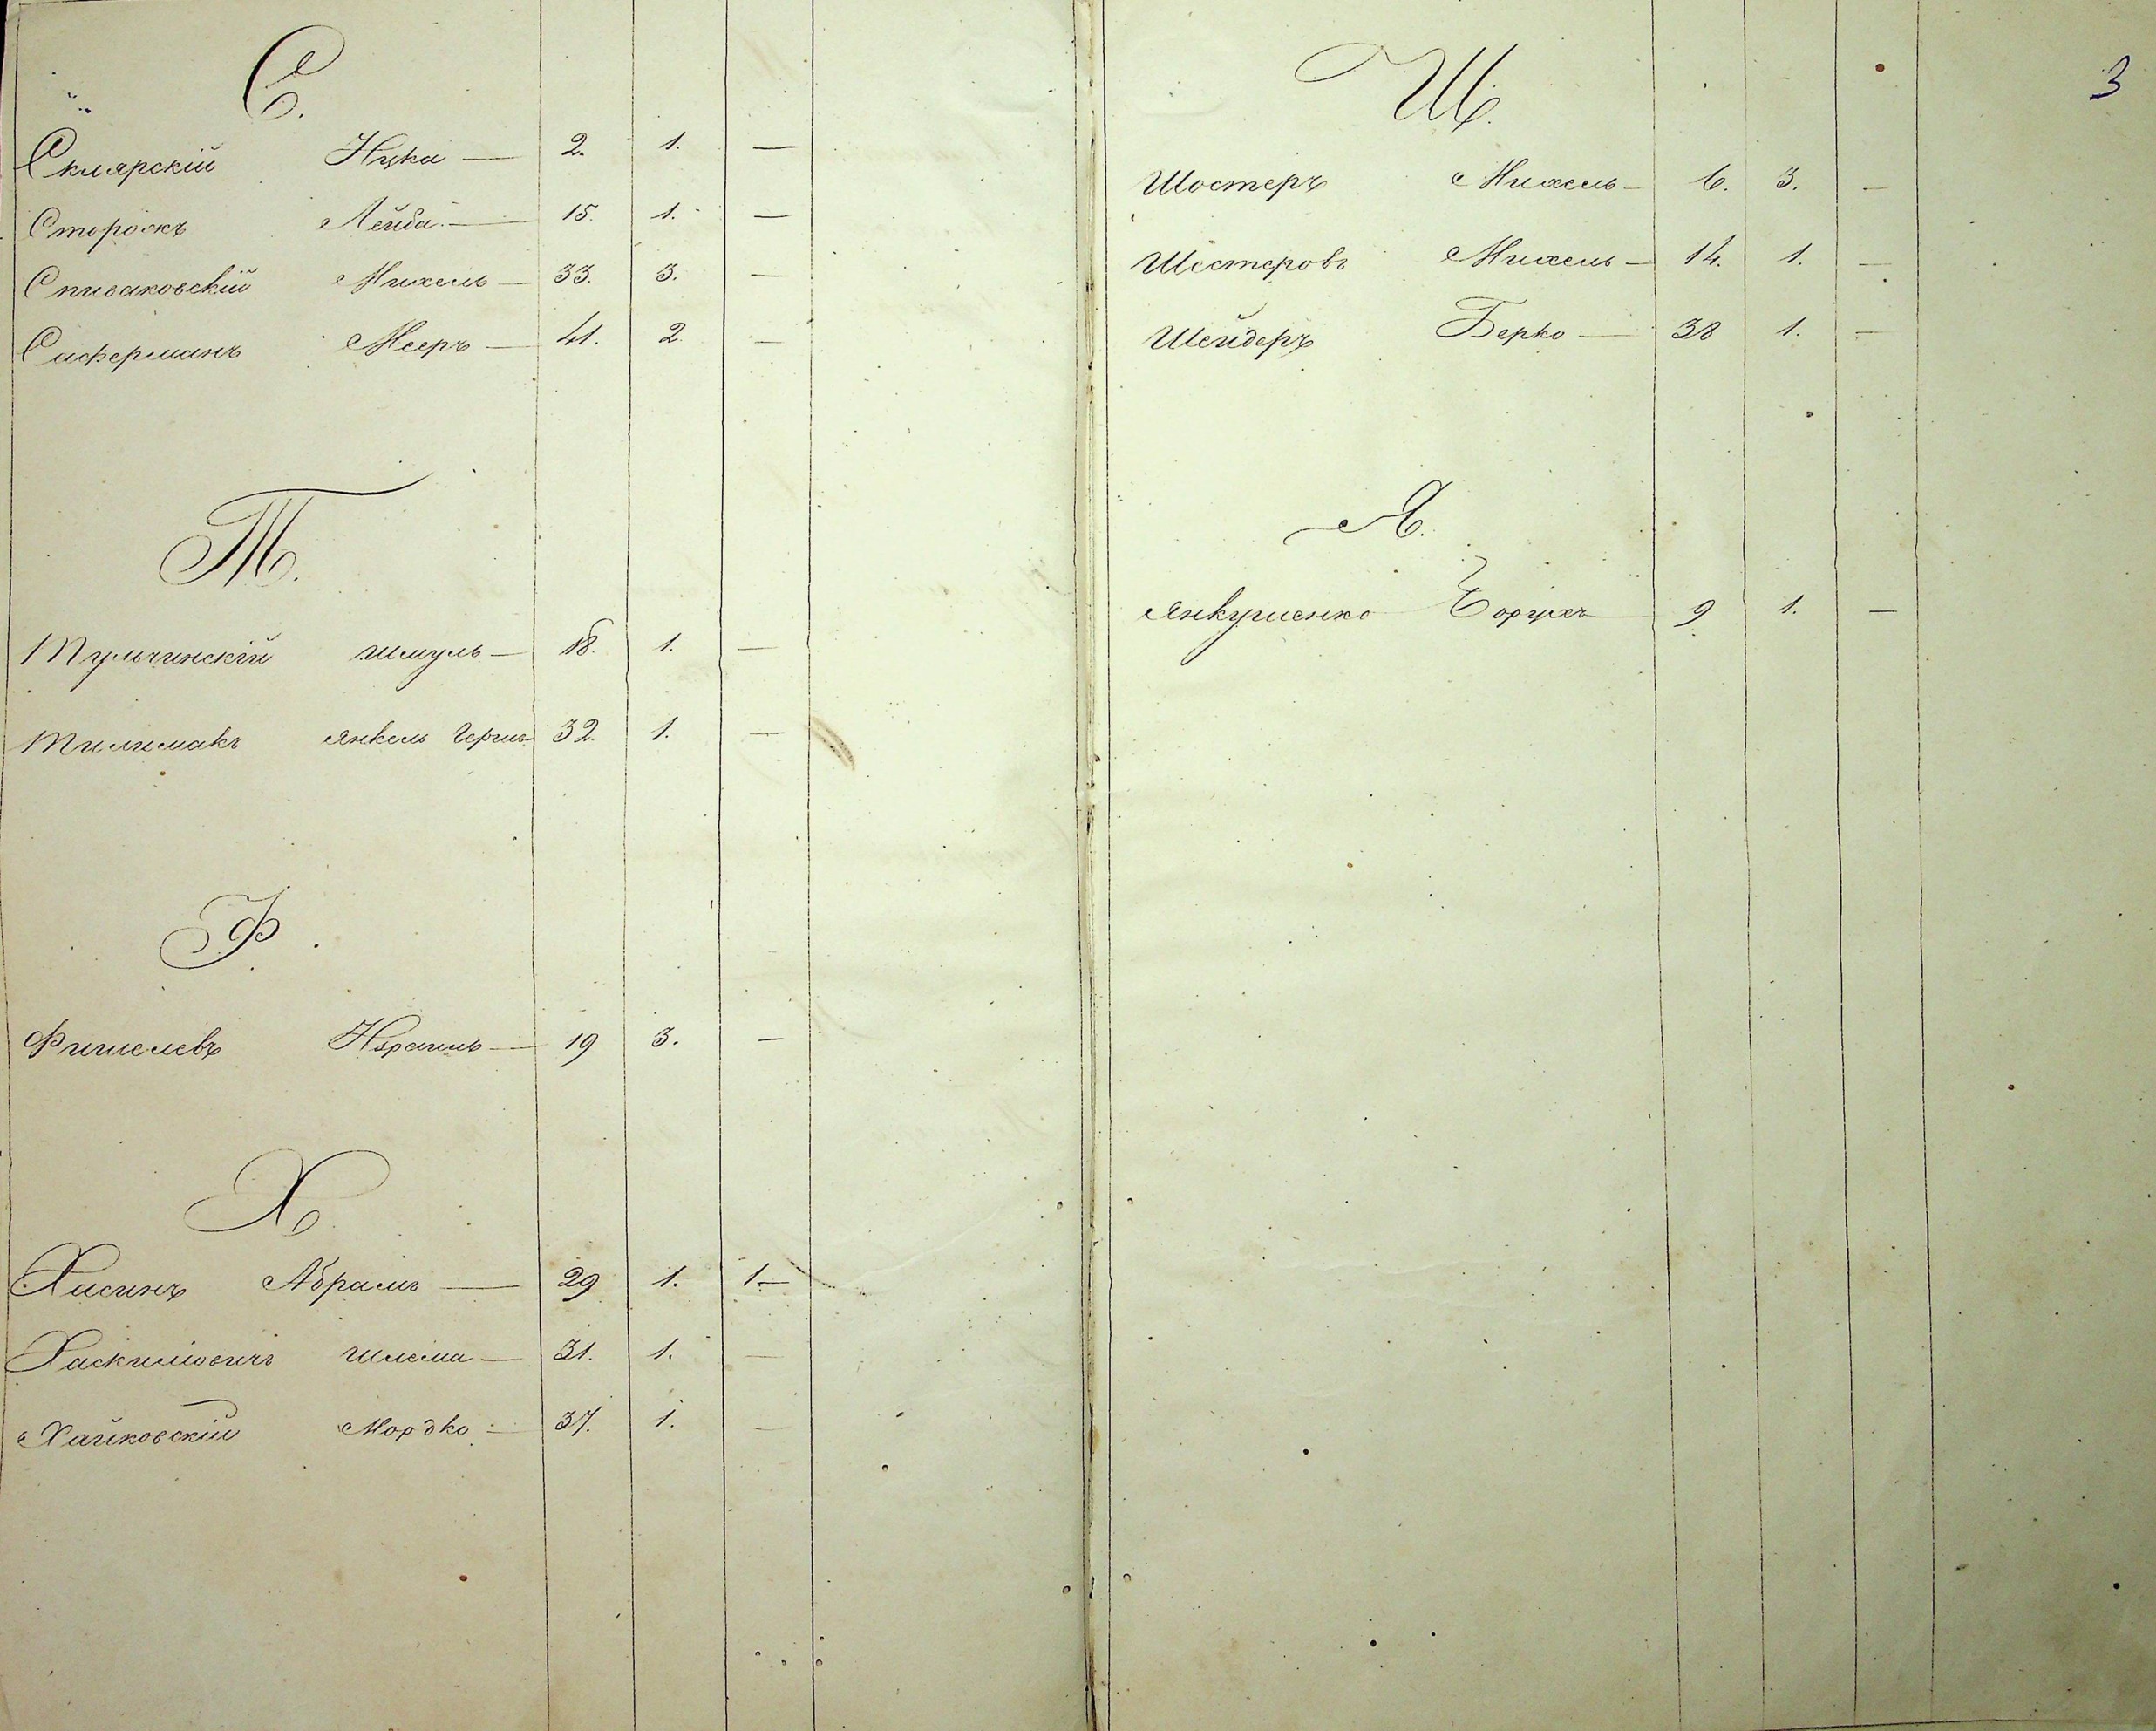 С.
Склярскій Ицка — 2. 1. —
Сторожъ Лейба — 15. 1. —
Спиваковскій Михель — 33. 3. —
Сиферманъ Мееръ — 41. 2. —
Т.
Тульчинскій Шмуль — 18. 1. —
Тилимакъ Янкель Герш. 32. 1. —
Ф.
Фишелевъ Израиль — 19 3. —
Х.
Хасинъ Абрамъ — 29 1. 1. —
Хаскилювичъ Шлема — 31. 1. —
Хайковскій Мордко — 37. 1. —
3
Ш.
Шостеръ Михель — 6. 3. —
Шестеровъ Михель — 14. 1. —
Шейдеръ Берко — 38 1. —
Я.
Янкушенко Борухъ 9 1. —